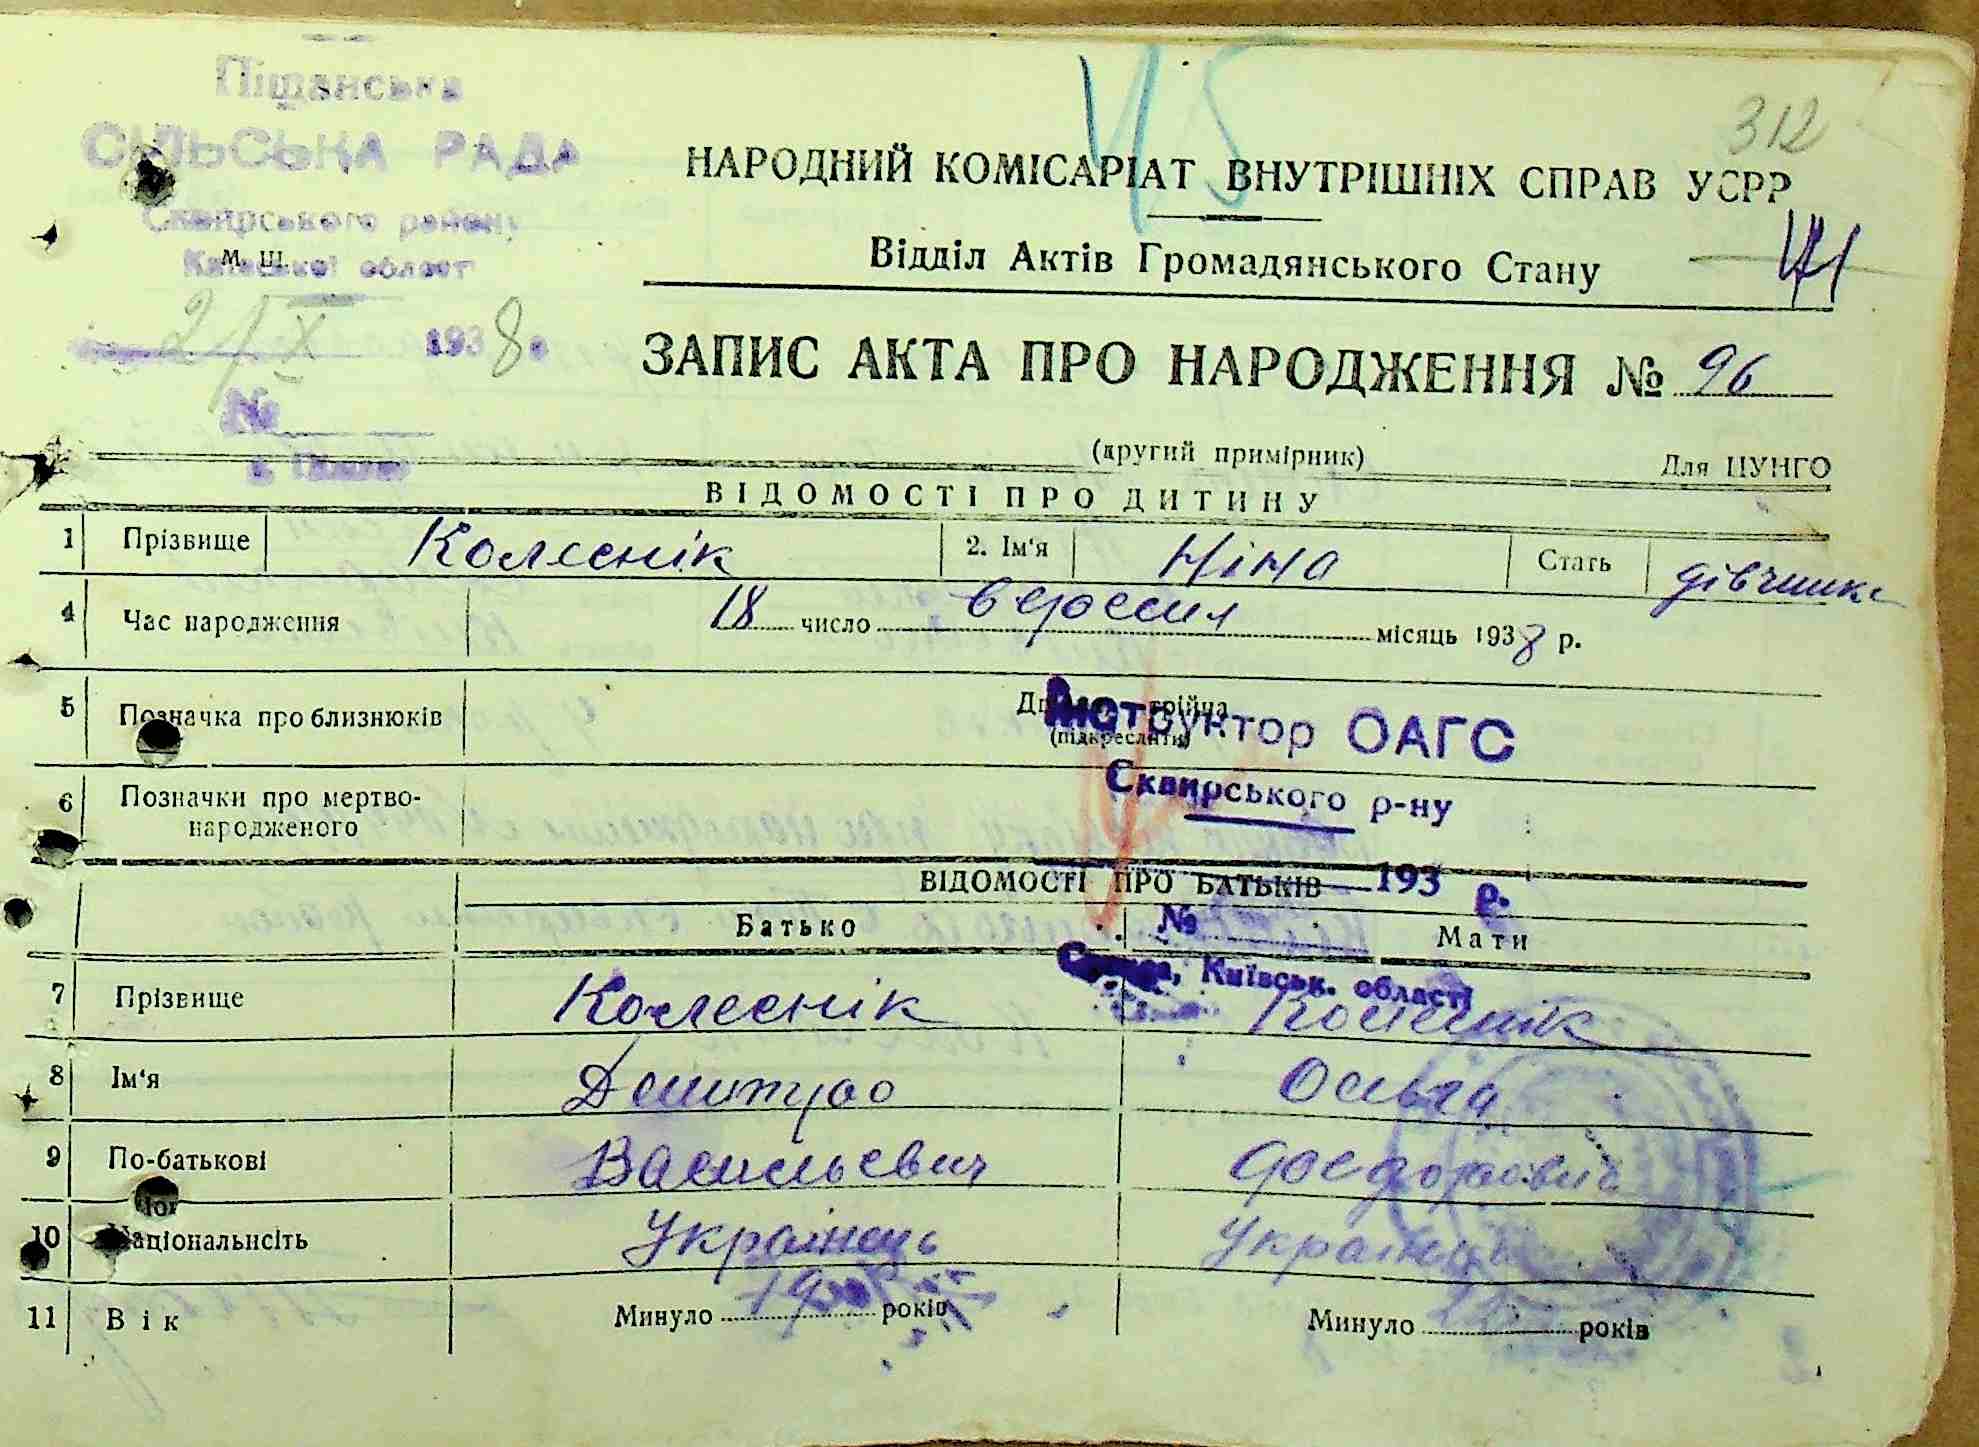 Піщанська
СІЛЬСЬКА РАДА
Сквирського району
Київської област
М. Ш.
21 X 1938 р.
№
45
312
НАРОДНИЙ КОМІСАРІАТ ВНУТРІШНІХ СПРАВ УСРР
Відділ Актів Громадянського Стану
ЗАПИС АКТА ПРО НАРОДЖЕННЯ № 96
(другий примірник) Для ЦУНГО
ВІДОМОСТІ ПРО ДИТИНУ
1 Прізвище Колєснік 2. Ім'я Ніна Стать дівчинка
4 Час народження 18 число вересня місяць 1938 р.
5 Позначка про близнюків трійча
(підкреслити)
Інструктор ОАГС
6 Позначки про мертво-
народженого
Сквирського р-ну
193 р.
ВІДОМОСТІ ПРО БАТЬКІВ
№
Батько Мати
Київськ. області
7 Прізвище Колєснік Колєснік
8 Ім'я Дмитро Ольга
9 По-батькові Васильєвич
10 Національність Українець
11 Вік Минуло років Минуло років